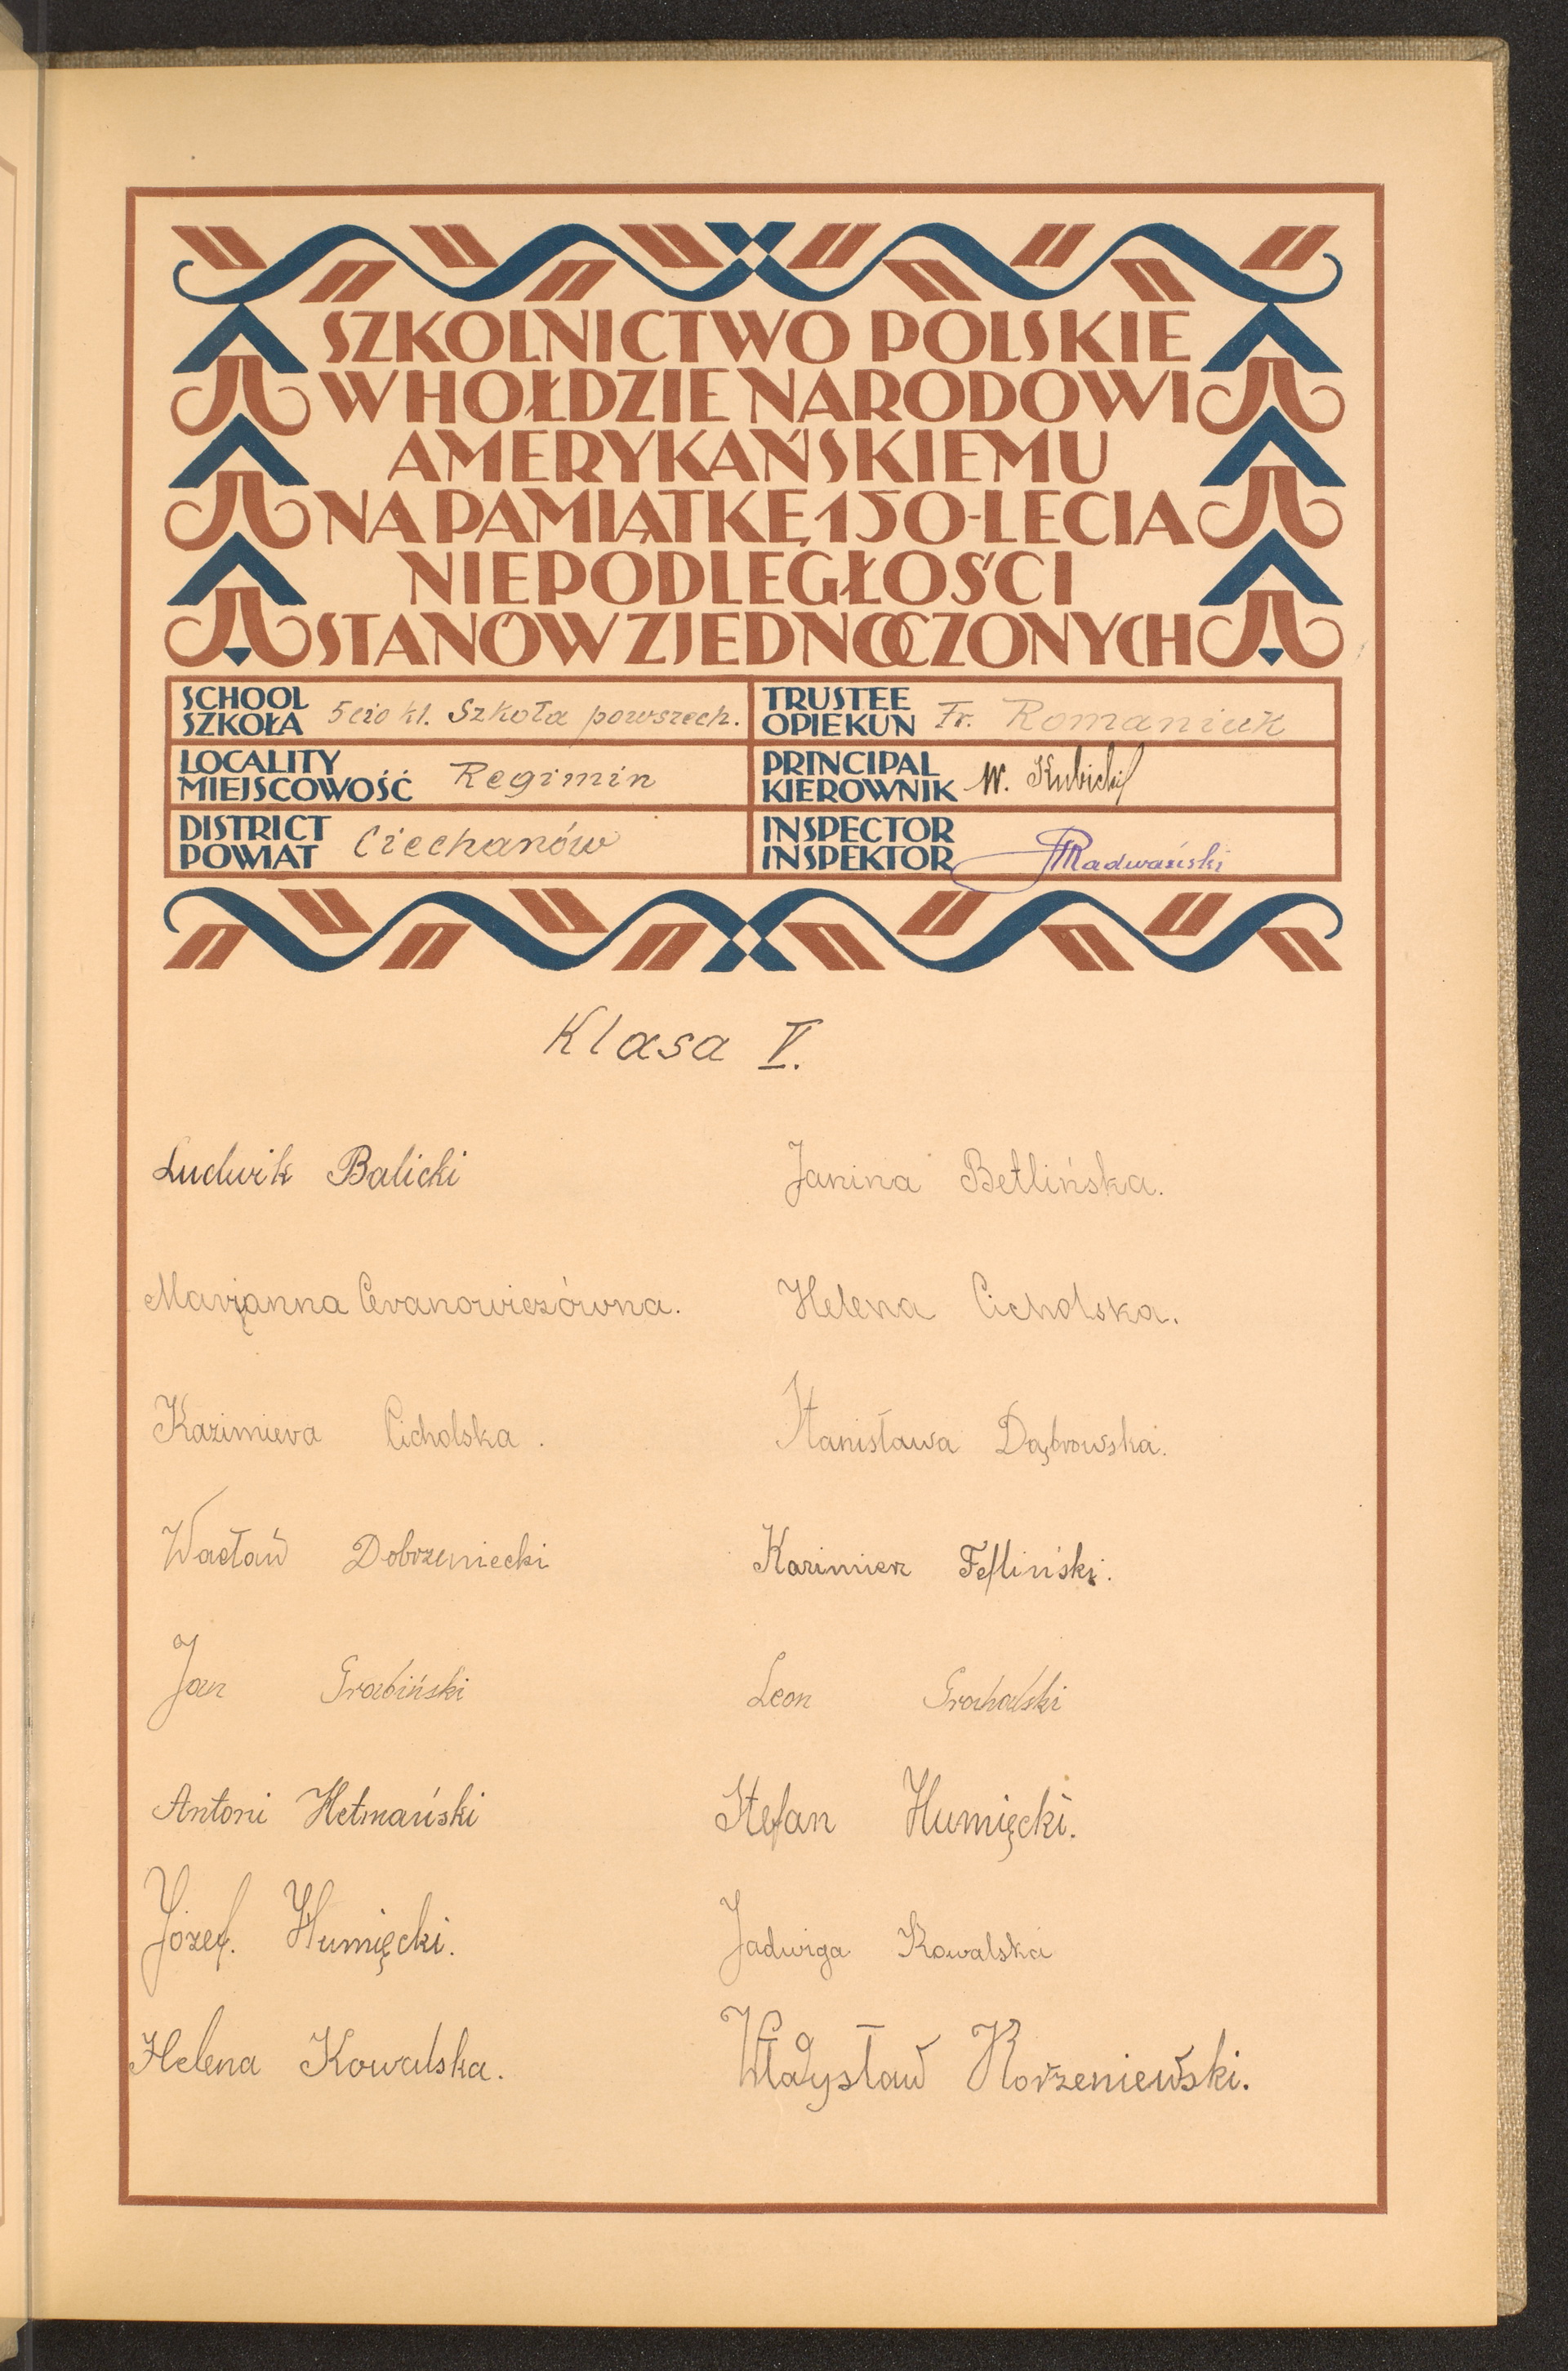 SZKOLNICTWO POLSKIE
W HOŁDZIE NARODOWI
AMERYKAŃSKIEMU
NA PAMIĄTKĘ 150-LECIA
NIEPODLEGŁOŚCI
STANÓW ZJEDNOCZONYCH
SCHOOL
SZKOŁA 5cio kl. Szkoła powszech.
TRUSTEE
OPIEKUN Fr. Romaniuk
LOCALITY
MIEJSCOWOŚĆ Regimin
PRINCIPAL
KIEROWNIK W. Kubicki
DISTRICT
POWIAT Ciechanów
INSPECTOR
INSPEKTOR Radwański
Klasa V.
Ludwik Balicki
Janina Betlińska.
Marjanna Cvanowiczówna.
Helena Cicholska.
Kazimiera Cicholska.
Stanisława Dąbrowska.
Wacław Dobrzeniecki
Kazimierz
Jan Grabiński
Leon Grochalski
Antoni Hetmański
Stefan Humięcki.
Józef. Humięcki.
Jadwiga Kowalska
Helena Kowalska.
Władysław Korzeniewski.